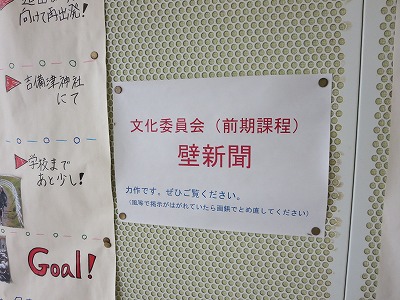 向けて再出発!
吉備津神社
にて
学校まで
あと少し!
Goal!
文化委員会(前期課程)
壁新聞
力作です。ぜひご覧ください。
(風等で掲示がはがれていたら画鋲でとめ直してください)